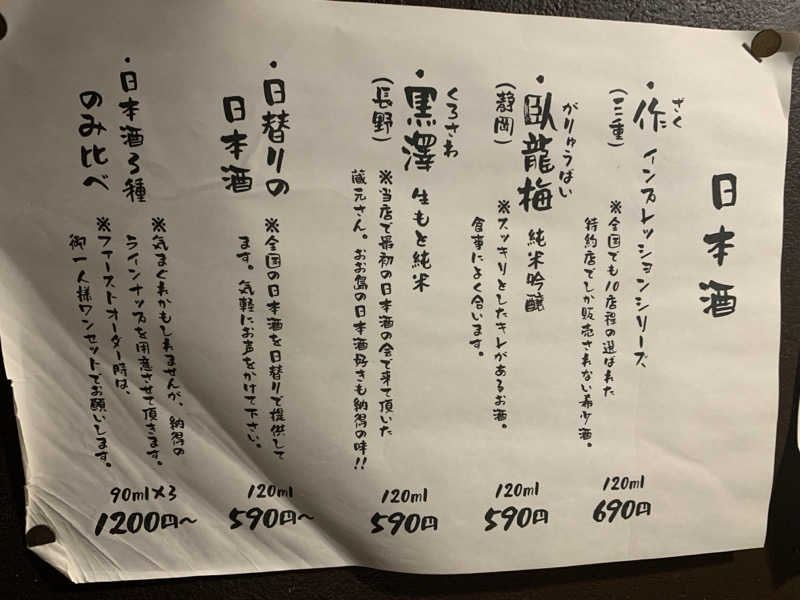 日本酒
・作 インプレッションシリーズ
ざく
(三重)
※全国でも10店程の選ばれた
特約店でしか販売されない希少酒。
120ml
690円
・臥龍梅 純米吟醸
がりゅうばい
(静岡)
※スッキリとしたキレがあるお酒。
食事によく合います。
120ml
590円
・黒澤 生もと純米
くろさわ
(長野)
※当店で最初の日本酒の会で来て頂いた
蔵元さん。お客の日本酒好きも納得の味!!
120ml
590円
・日替りの
日本酒
※全国の日本酒を日替りで提供して
ます。気軽にお声をかけて下さい。
120ml
590円〜
・日本酒3種
のみ比べ
※気まぐれかもしれませんが、納得の
ラインナップを用意させて頂きます。
※ファーストオーダー時は、
御一人様ワンセットでお願いします。
90ml×3
1200円〜